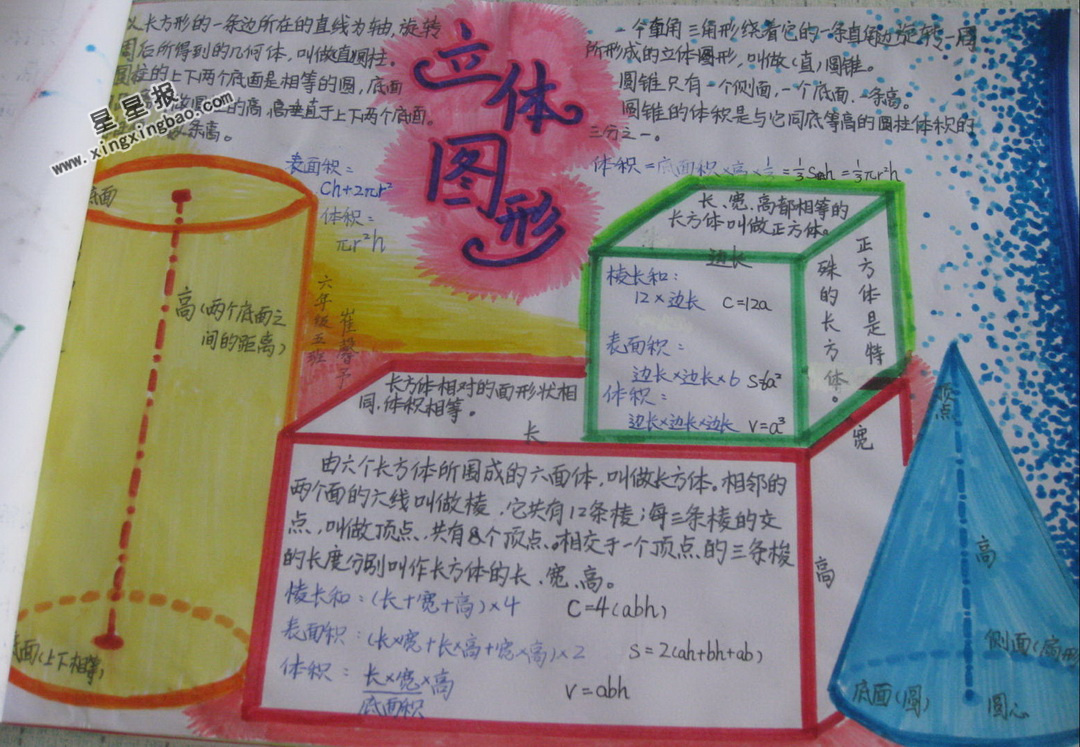 以长方形的一条边所在的直线为轴,旋转
周后所得到的几何体,叫做直圆柱。
圆柱的上下两个底面是相等的圆,底面
的高,高垂直于上下两个底面。
条高。
星星报
xingxingbao.com
www.xingxingbao.com
立体
图形
一个直角三角形绕着它的一条直角边旋转一周
所形成的立体图形,叫做(直)圆锥。
圆锥只有一个侧面,一个底面.一条高。
圆锥的体积是与它同底等高的圆柱体积的
三分之一。
体积=底面积×高×1/3=1/3Sh=1/3πr²h
表面积:
Ch+2πr²
体积:
πr²h
底面
高(两个底面之
间的距离)
底面(上下相等)
六年级五班
崔馨予
长、宽、高都相等的
长方体叫做正方体。
边长
棱长和:
12×边长 C=12a
表面积:
边长×边长×6 S=6a²
体积:
边长×边长×边长 V=a³
正方体是特
殊的长方体。
长方体相对的面形状相
同.体积相等。
长
宽
高
由六个长方体所围成的六面体,叫做长方体。相邻的
两个面的六线叫做棱,它共有12条棱;每三条棱的交
点,叫做顶点,共有8个顶点。相交于一个顶点的三条梭
的长度分别叫作长方体的长、宽、高。
棱长和:(长+宽+高)×4 C=4(abh)
表面积:(长×宽+长×高+宽×高)×2 S=2(ah+bh+ab)
体积:长×宽×高 V=abh
底面积
顶点
高
侧面(扇形
底面(圆)
圆心